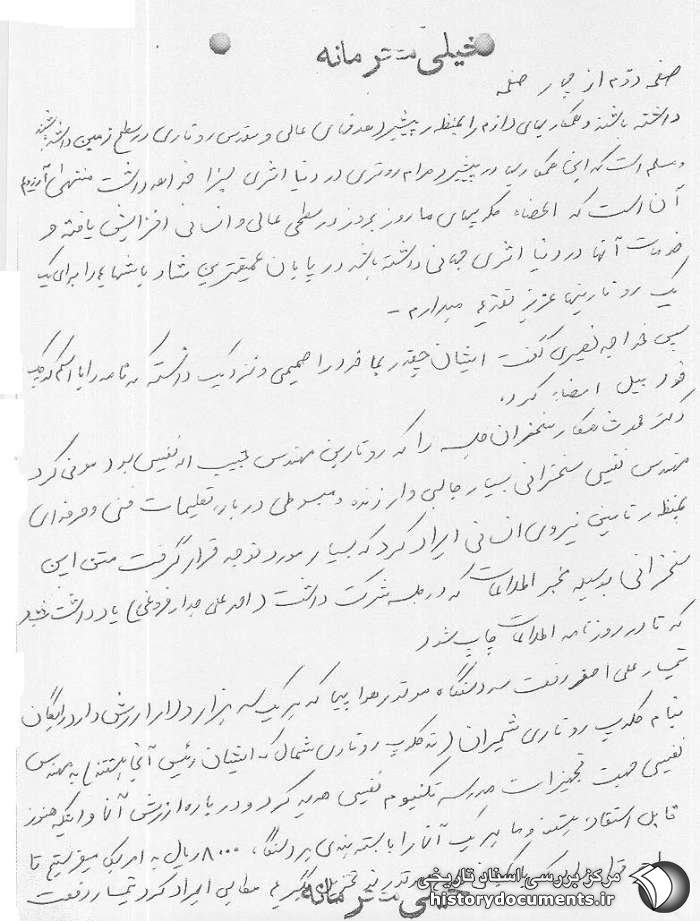 خیلی محترمانه
صفحه دوم از چهار صفحه
داشته باشند و همکاریهای لازم را بمنظور پیشبرد هدفهای عالی و مقدس روتاری در سطح زمین داشته باشند
و مسلم است که این همکاری در پیشبرد مرام روتری در دنیا اثری بسزا خواهد داشت منتهای آرزویم
آن است که اعضاء کلوپهای ما روز بروز در سطحی عالی و انسانی افزایش یافته و
خدمات آنها در دنیا اثری جهانی داشته باشد در پایان عمیقترین شاد باشهایم را برای یک
یک روتارینهای عزیز تقدیم میدارم -
سپس خواجه نصیری گفت ایشان چقدر بما خود را صمیمی و نزدیک دانسته که نامه را با اسم کوچک
خود بیل امضاء کرد.
دکتر همکار سخنران جلسه را که روتارین مهندس حبیب اله نفیسی بود معرفی کرد
مهندس نفیسی سخنرانی بسیار جالبی و ارزنده و مبسوطی درباره تعلیمات فنی و حرفه ای
بمنظور تامین نیروی انسانی ایراد کرد که بسیار مورد توجه قرار گرفت متن این
سخنرانی بوسیله مخبر اطلاعات که در جلسه شرکت داشت (احمد علی) یادداشت شد
که تا در روزنامه اطلاعات چاپ شود
تیمسار علی اصغر رفعت سه دستگاه موتور هواپیما که هر یک سه هزار دلار ارزش دارد رایگان
بنام کلوپ روتاری شمیران (نه کلوپ روتاری شمال که ایشان رئیس آنجا هستند) به مهندس
نفیسی جهت تجهیزات مدرسه تکنیوم نفیسی هدیه کرد و درباره ارزش آنها و اینکه هنوز
قابل استفاده هستند و ما هر یک آنها را با بسته بندی هر دستگاه ۸۰۰۰ ریال به امریکا میفرستیم تا
مطالبی ایراد کرد تیمسار رفعت
خیلی محترمانه
مرکز بررسی اسناد تاریخی
historydocuments.ir